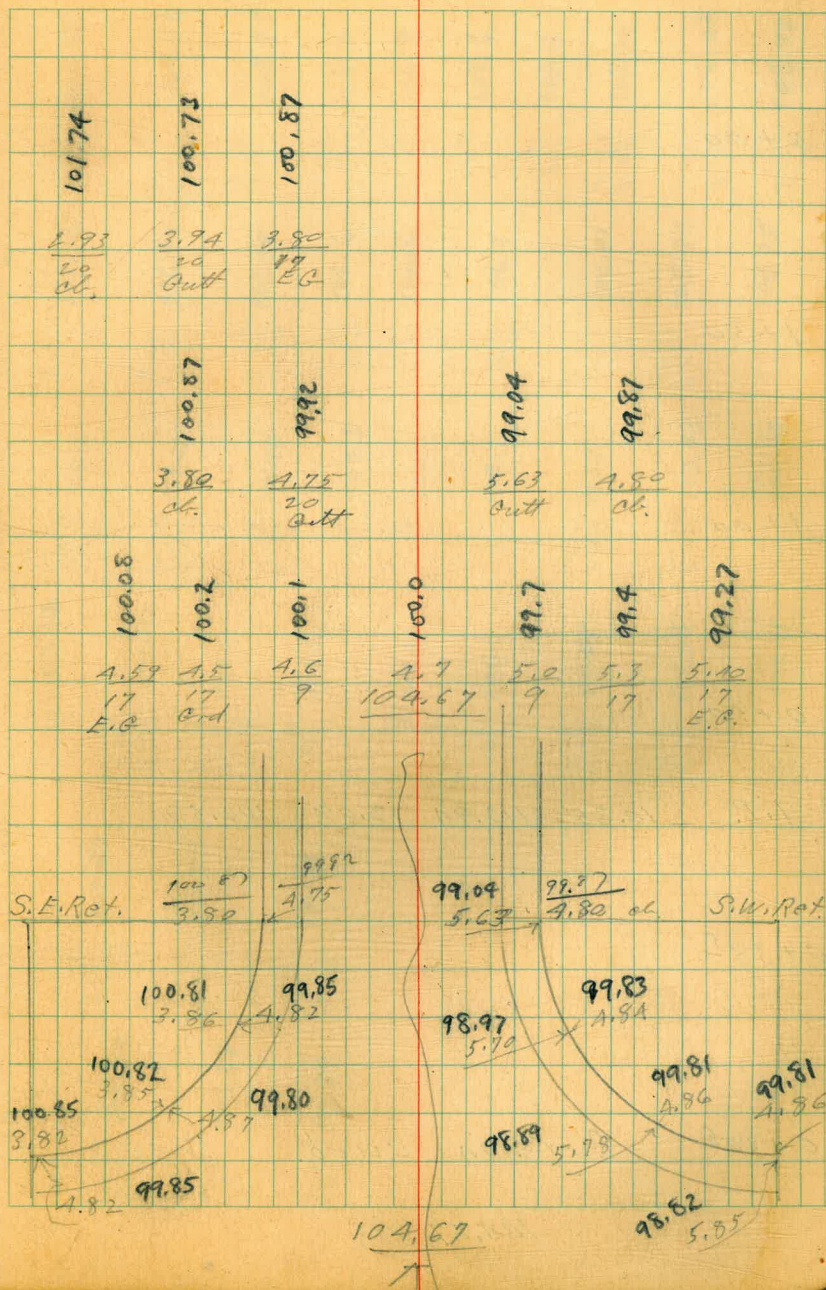 101.74 100.73 100.87
2.93 3.94 3.80
20 20 17
cb. Gutt E G
100.87 99.92 99.04 99.87
3.80 4.75 5.63 4.80
cb. 20 Gutt cb.
Gutt
100.08 100.2 100.1 100.0 99.7 99.4 99.27
4.59 4.5 4.6 4.7 5.0 5.3 5.40
17 17 9 104.67 9 17 17
E.G Grd E.G.
100.87 99.92 99.04 99.87
S.E. Ret. 3.80 4.75 5.63 4.80 cb S.W. Ret.
100.81 99.85 99.83
3.86 4.82 98.97 4.84
5.70
100.82 99.81 99.81
3.85 99.80 4.86 4.86
100.85 4.87
3.82 98.89 5.78
99.85
4.82 98.82
104.67 5.85